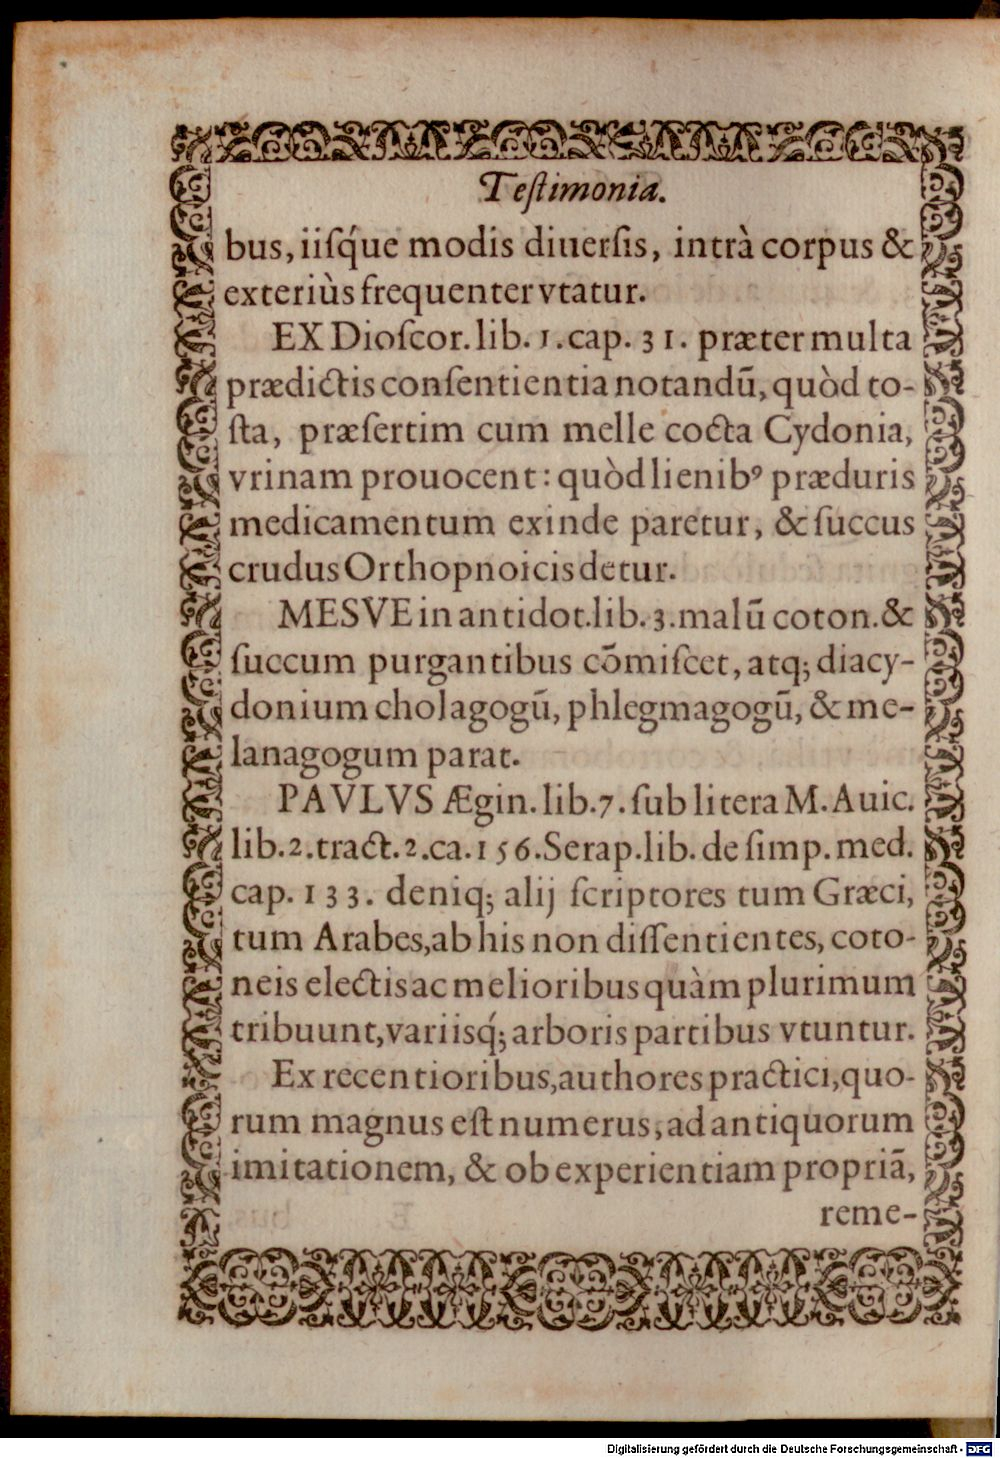 Teſtimonia.
bus, iiſq́ue modis diuerſis, intrà corpus &
exteriùs frequenter vtatur.
EX Dioſcor. lib. 1. cap. 31. præter multa
prædictis conſentientia notandū, quòd to-
ſta, præſertim cum melle cocta Cydonia,
vrinam prouocent: quòd lienibꝰ præduris
medicamentum exinde paretur, & ſuccus
crudus Orthopnoicis detur.
MESVE in antidot. lib. 3. malū coton. &
ſuccum purgantibus cōmiſcet, atq; diacy-
donium cholagogū, phlegmagogū, & me-
lanagogum parat.
PAVLVS Ægin. lib. 7. ſub litera M. Auic.
lib. 2. tract. 2. ca. 156. Serap. lib. de ſimp. med.
cap. 133. deniq; alij ſcriptores tum Græci,
tum Arabes, ab his non diſſentientes, coto-
neis electis ac melioribus quàm plurimum
tribuunt, variisq́; arboris partibus vtuntur.
Ex recentioribus, authores practici, quo-
rum magnus eſt numerus, ad antiquorum
imitationem, & ob experientiam propriā,
reme-
Digitalisierung gefördert durch die Deutsche Forschungsgemeinschaft - DFG